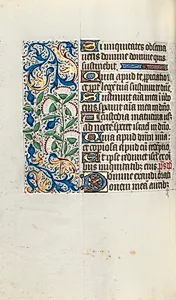 Si iniquitates observa
veris domine domine quis
sustinebit
Quia apud te propiciacio
est et propter legem tuam sustinui te dne
Sustinuit aīa mea in verbo
eius speravit aīa mea in dño
A custodia matutina usq
ad noctē speret israel in dño
Quia apud dnm mia et
copiosa apud eū redēptio
Et ipse redimet isrl ex oī
bus iniquitatibꝰ eius ps
Domine exaudi oratio
onem meā auribꝰ